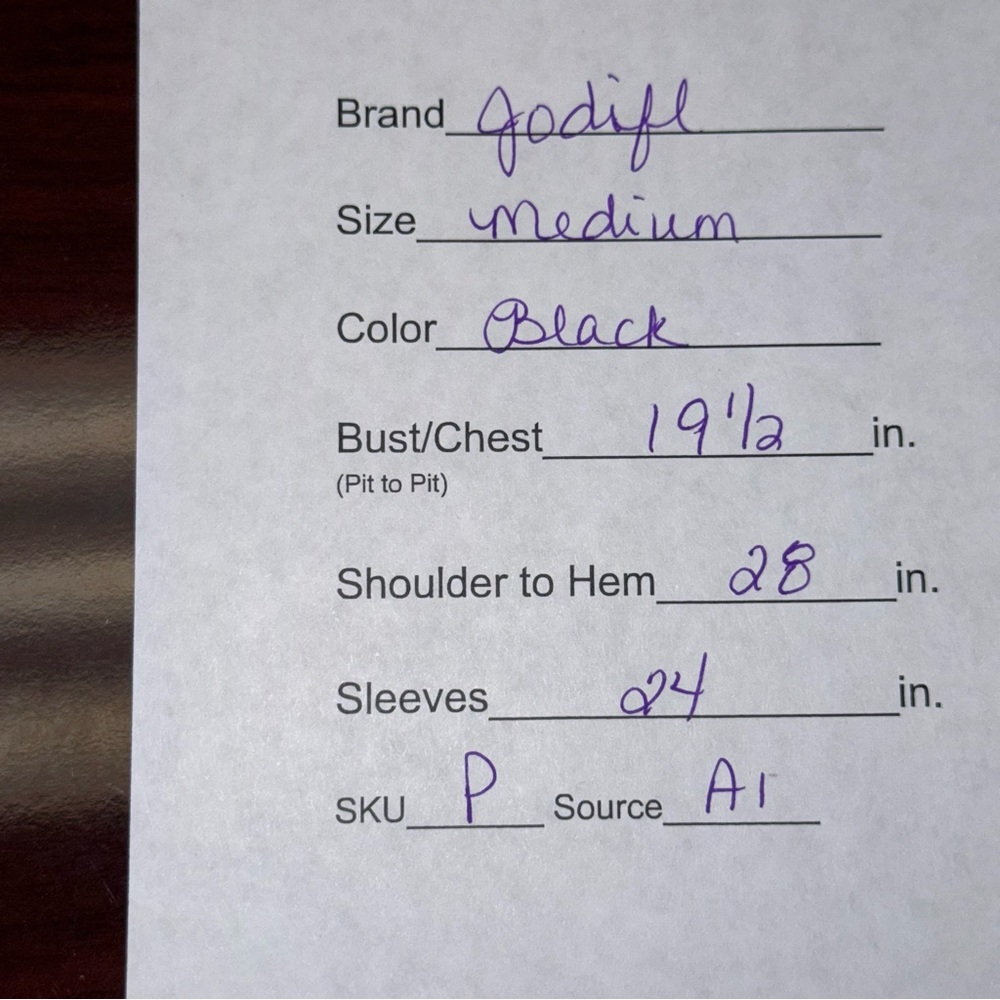 Brand Jodifl
Size Medium
Color Black
Bust/Chest 19 1/2 in.
(Pit to Pit)
Shoulder to Hem 28 in.
Sleeves 24 in.
SKU P Source A1